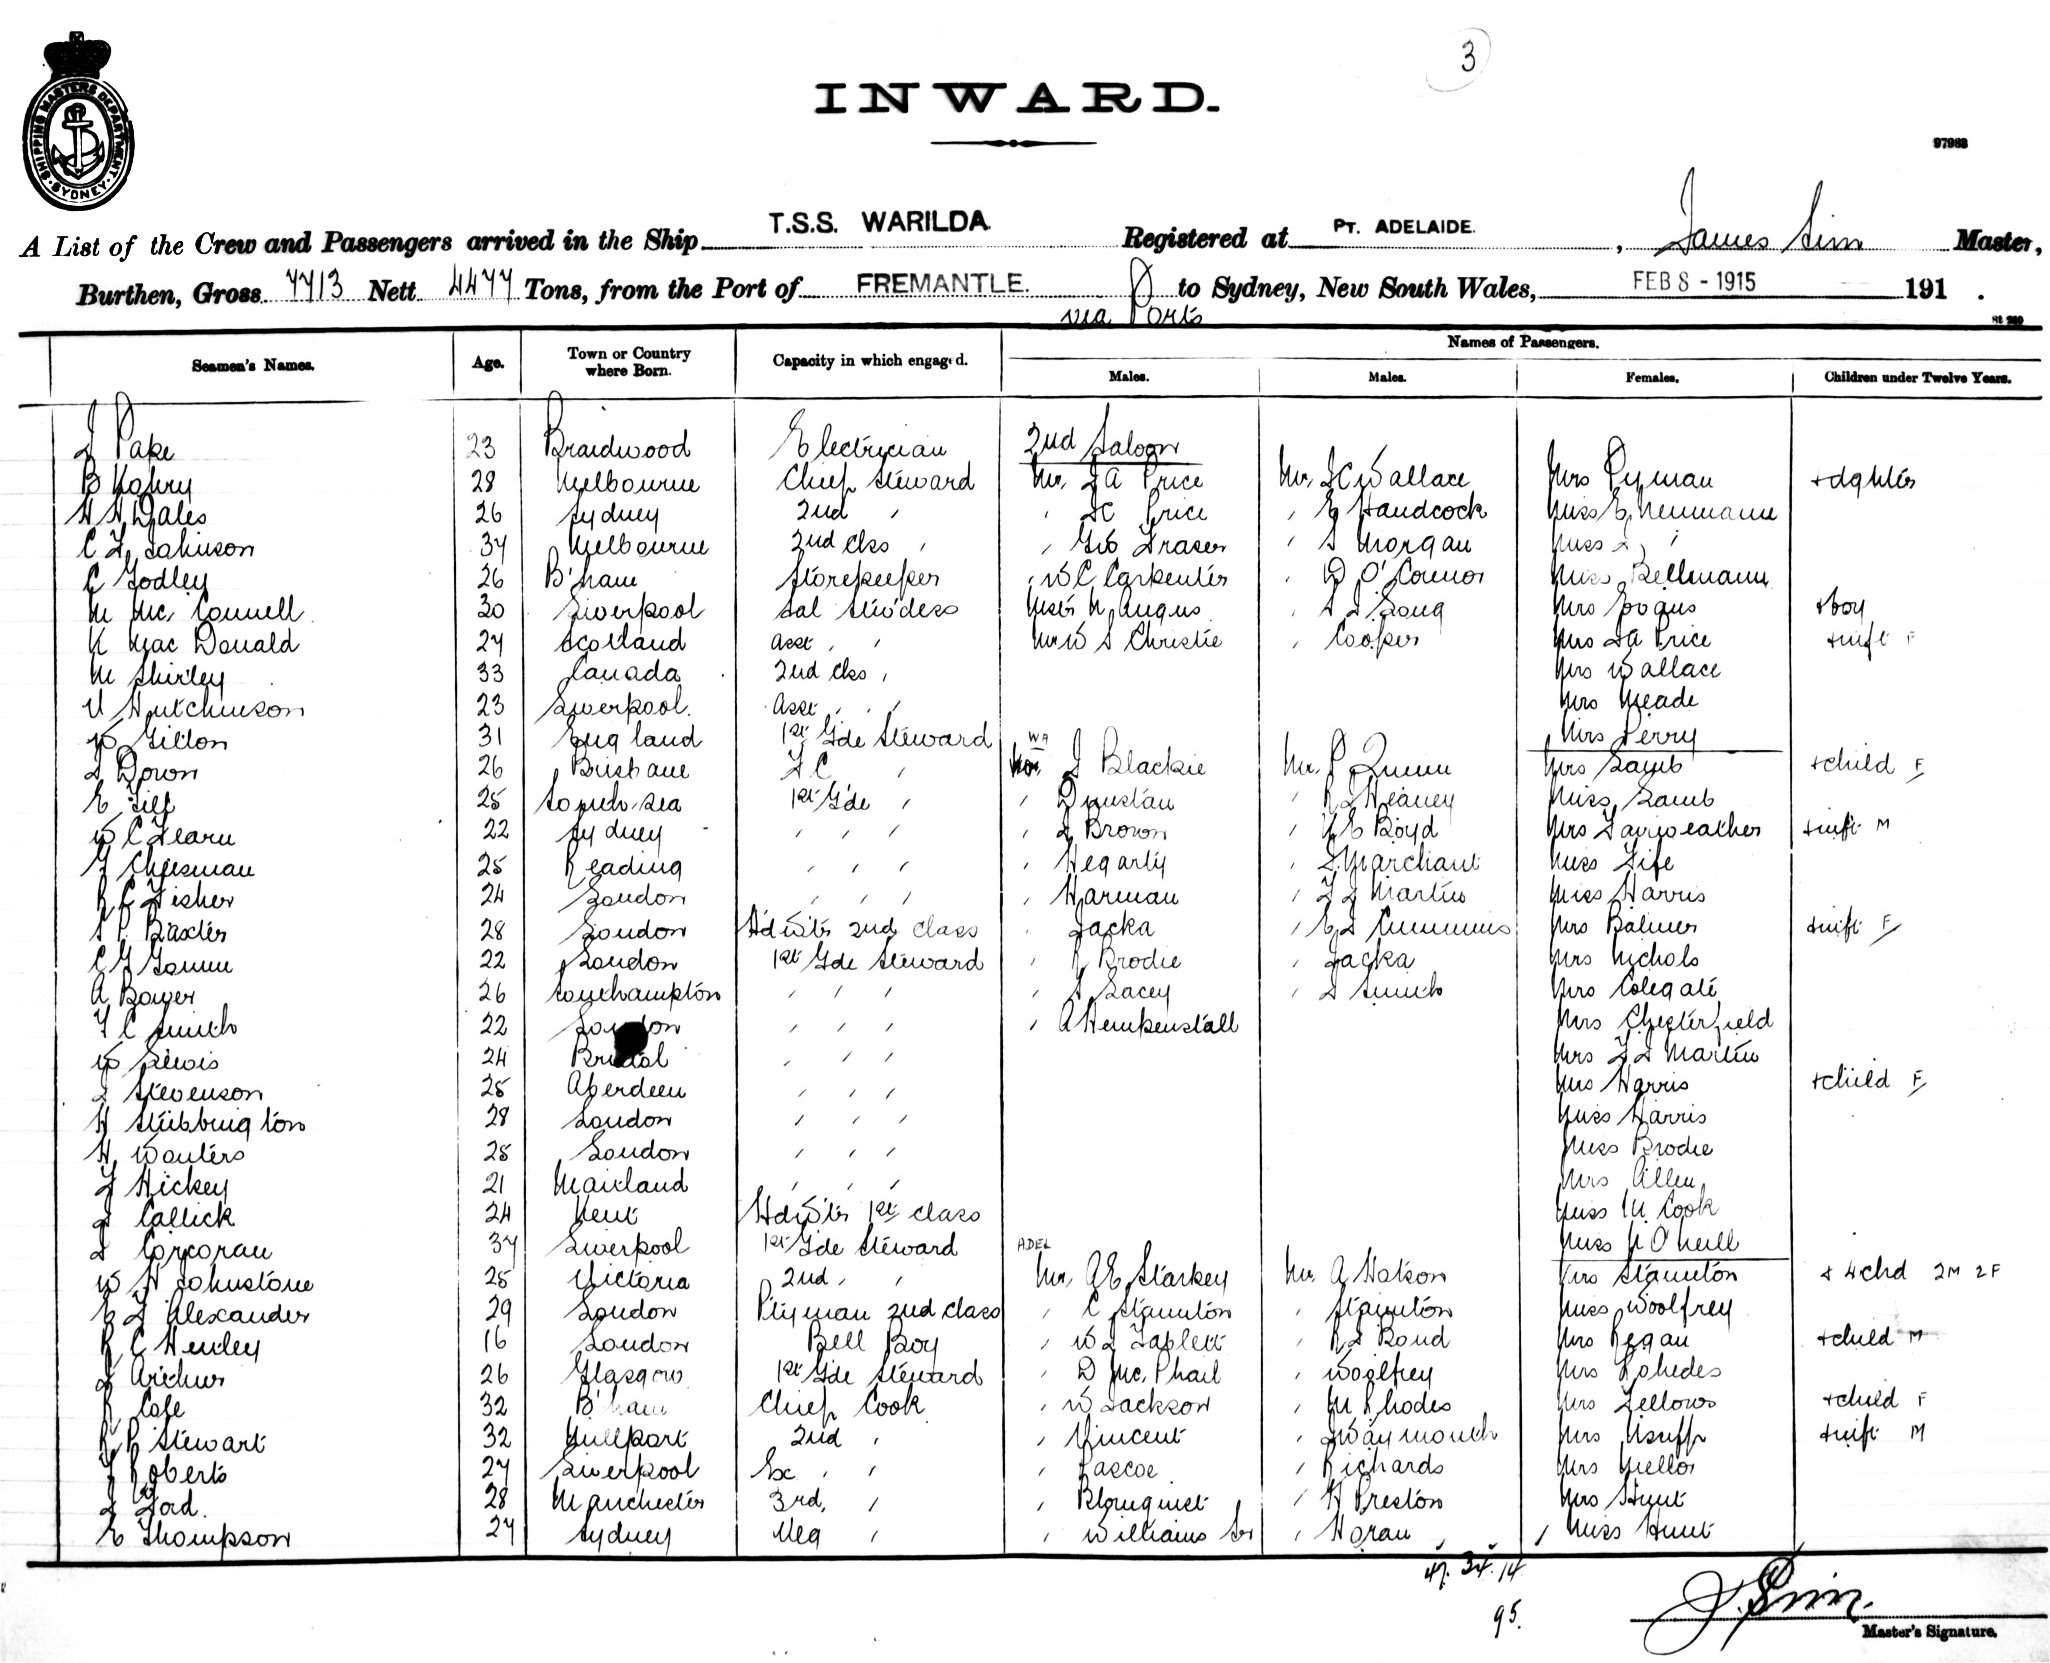 3
INWARD.
SHIPPING MASTERS DEPARTMENT · SYDNEY ·
97983
A List of the Crew and Passengers arrived in the Ship T.S.S. WARILDA Registered at PT. ADELAIDE. , James Sim Master,
Burthen, Gross 7713 Nett 4477 Tons, from the Port of FREMANTLE. to Sydney, New South Wales, FEB 8 - 1915 191 .
via Ports
St 260
Names of Passengers.
Seamen's Names. Age. Town or Country where Born. Capacity in which engaged. Males. Males. Females. Children under Twelve Years.
J Pake 23 Braidwood Electrician 2nd Saloon
B 28 Melbourne Chief Steward Mr. J A Price Mr. J C Wallace Mrs Pyman + dghter
H H Dales 26 Sydney 2nd " " J C Price " E Handcock Miss E Neumann
C F Johnson 37 Melbourne 2nd Clss " " Geo Fraser " S Morgan Miss L "
C Godley 26 B'ham Storekeeper " W C Carpenter " D O'Connor Miss Bellmann
M Mc Connell 30 Liverpool Sal Stew'dess Mstr N Angus " S J Long Mrs Evans + boy
K Mac Donald 27 Scotland Asst " " Mr W S Christie " Cooper Mrs J A Price + inft F
M Shirley 33 Canada 2nd Clss " Mrs Wallace
V Hutchinson 23 Liverpool. Asst " " Mrs Meade
W Gillon 31 England 1st Gde Steward Mrs Perry
WA
J Down 26 Brisbane F C " Mr. J Blackie Mr. P Quinn Mrs Lamb + child F
E Fill 25 South Sea 1st Gde " " Dunstan " R J Heaney Miss Lamb
W C Fearn 22 Sydney " " " " J Brown " E Boyd Mrs Fairweather + inft M
G Cheesman 25 Reading " " " " Hegarty " S Marchant Miss Fife
R E Fisher 24 London " " " " Harman " F J Martin Miss Harris
S P Baxter 28 London Hd Wtr 2nd class " Jacka " E J Cummins Mrs Balmer + inft F
C G Gomm 22 London 1st Gde Steward " R Brodie " Jacka Mrs Nichols
A Bower 26 Southampton " " " " S Lacey " J Smith Mrs Colegate
F C Smith 22 London " " " " A Hempenstall Mrs Chesterfield
W Lewis 24 Bristol " " " Mrs F J Martin
J Stevenson 25 Aberdeen " " " Mrs Harris + child F
H Stubbington 28 London " " " Miss Harris
H Wouters 28 London " " " Miss Brodie
F Hickey 21 Maitland " " " Mrs Allen
J Callick 24 Kent Hd Wtr 1st class Miss M Cook
J Corcoran 37 Liverpool 1st Gde Steward Miss N O'Neill
ADEL
W H Johnstone 25 Victoria 2nd " " Mr. A E Starkey Mr. A Hotson Mrs Staunton + 4 chd 2M 2F
E J Alexander 29 London P'tryman 2nd class " C Staunton " Staunton Miss Woolfrey
R C Henley 16 London Bell Boy " W J Taplett " R J Bond Mrs Regan + child M
J Arthur 26 Glasgow 1st Gde Steward " D Mc. Phail " Woolfrey Mrs Rohedes
R Cafe 32 B'ham Chief Cook " W Jackson " M Rhodes Mrs Fellows + child F
R R Stewart 32 Millport 2nd " " Vincent " J Waymouth Mrs + inft M
F Roberts 27 Liverpool Ex " " " Pascoe " Richards Mrs Mellor
J Ford. 28 Manchester 3rd, " " Blomquist " H Preston Mrs Hunt
E Thompson 27 Sydney Veg " " Williams Sr " Horan Miss Hunt
47. 34. 14
95.
J. Sim.
Master's Signature.